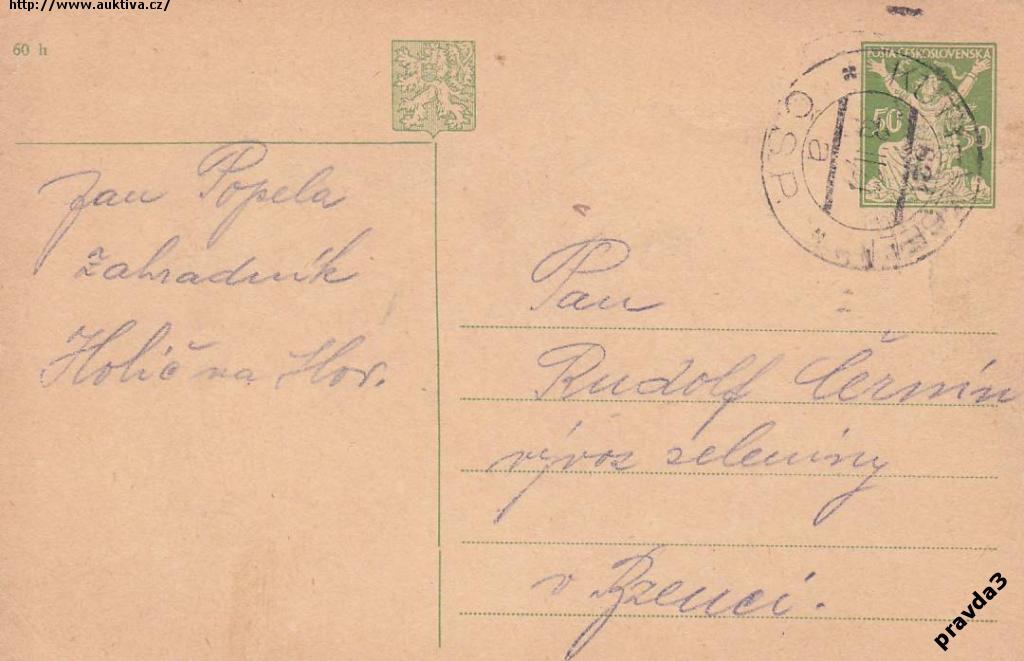 http://www.auktiva.cz/
60 h
POŠTA ČESKOSLOVENSKÁ
50 50
ČSP
a
Jan Popela
zahradník
Holič na Slov.
Pan
Rudolf Čermín
vývoz zeleniny
v Bzenci.
pravda3